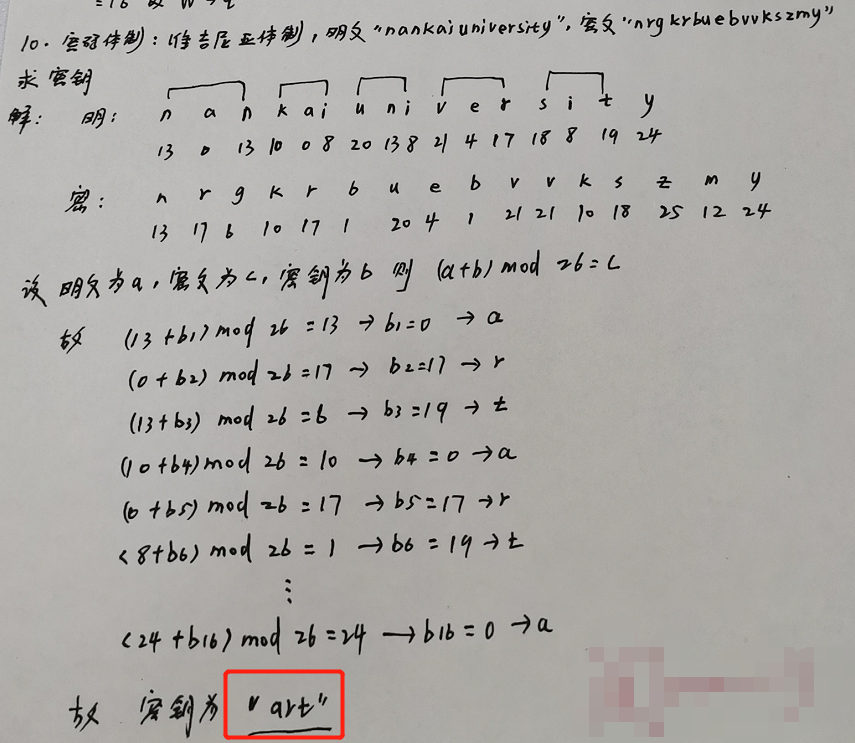 10. 密码体制: 维吉尼亚体制, 明文"nankaiuniversity", 密文"nrgkrbuebvvkszmy"
求密钥
解: 明: n a n k a i u n i v e r s i t y
13 0 13 10 0 8 20 13 8 21 4 17 18 8 19 24
密: n r g k r b u e b v v k s z m y
13 17 6 10 17 1 20 4 1 21 21 10 18 25 12 24
设明文为a, 密文为c, 密钥为b 则 (a+b) mod 26=c
故 (13+b1) mod 26 =13 → b1=0 → a
(0+b2) mod 26=17 → b2=17 → r
(13+b3) mod 26 =6 → b3=19 → t
(10+b4) mod 26 = 10 → b4=0 → a
(0+b5) mod 26 =17 → b5=17 → r
(8+b6) mod 26 = 1 → b6 = 19 → t
⋮
(24+b16) mod 26=24 → b16=0 → a
故 密钥为 "art"